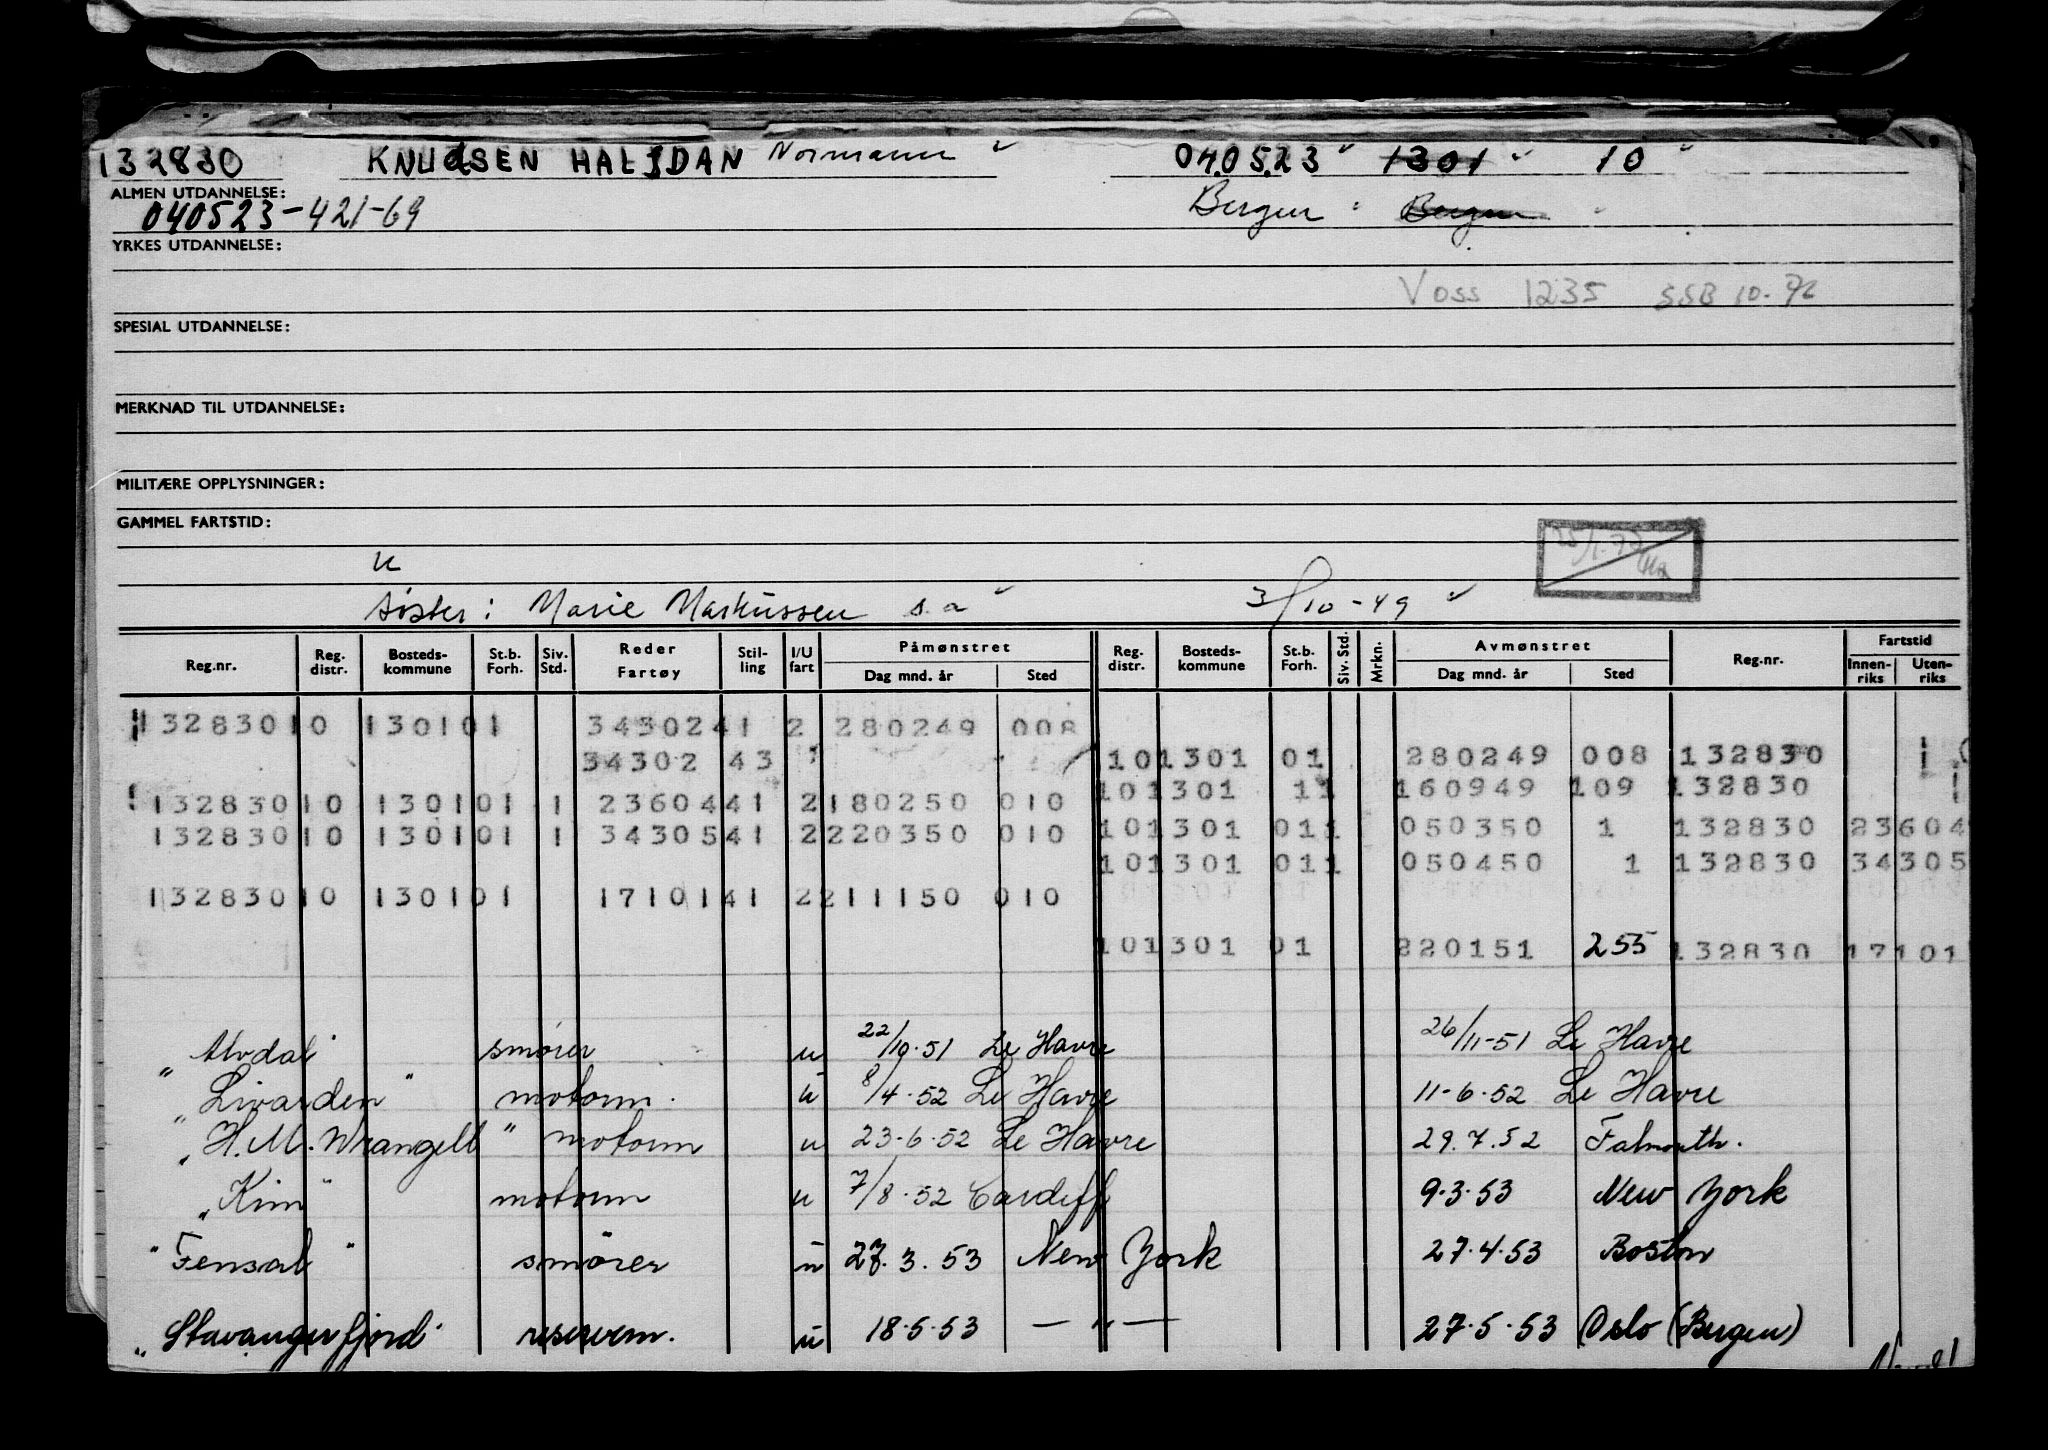 132830 KNUDSEN HALFDAN Normann 04.05.23 1301 10
ALMEN UTDANNELSE:
040523-421-69 Bergen Bergen
YRKES UTDANNELSE:
Voss 1235 SSB 10.76
SPESIAL UTDANNELSE:
MERKNAD TIL UTDANNELSE:
MILITÆRE OPPLYSNINGER:
GAMMEL FARTSTID:
u
søster: Marie Markussen s.a 3/10-49
Reg.nr. Reg. distr. Bosteds-kommune St.b. Forh. Siv. Std. Reder Fartøy Stil-ling I/U fart Påmønstret Dag mnd. år Sted Reg. distr. Bosteds-kommune St.b. Forh. Siv. Std. Mrkn. Avmønstret Dag mnd. år Sted Reg.nr. Fartstid Innen-riks Uten-riks
132830 10 1301 01 34302 41 2 280249 008
34302 43 10 1301 01 280249 008 132830
10 1301 11 160949 109 132830
132830 10 1301 01 1 23604 41 2 180250 010
10 1301 01 1 050350 1 132830 23604
132830 10 1301 01 1 34305 41 2 220350 010
10 1301 01 1 050450 1 132830 34305
132830 10 1301 01 17101 41 2 211150 010
10 1301 01 220151 255 132830 17101
"Alvdal" smører u 22/10.51 Le Havre 26/11-51 Le Havre
"Livarden" motorm. u 8/4.52 Le Havre 11-6.52 Le Havre
"H.M. Wrangell" motorm u 23-6.52 Le Havre 29.7.52 Falmouth.
"Kim" motorm u 7/8.52 Cardiff 9.3.53 New York
"Fensal" smører u 27.3.53 New York 27.4.53 Boston
"Stavangerfjord" reserem. u 18.5.53 — " — 27.5.53 Oslo (Bergen)